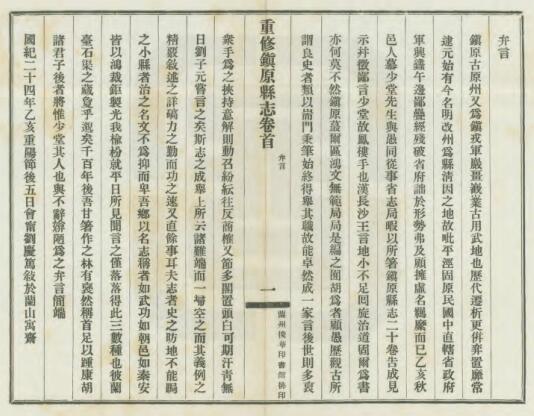 弁言
鎭原古原州又爲鎭戎軍巖畺巀嶪古用武地也歷代遷析更併弃置靡常
逮元始有今名明改州爲縣淸因之地故毗平涇固原民國中直轄省政府
軍興蠭午邊鄙疊經殘破省府詘於形勢弗及顧擁虛名羈縻而已乙亥秋
邑人慕少堂先生與愚同從事省志局暇以所箸鎭原縣志二十卷古成見
示幷徵鄙言少堂故鳳樓手也漢長沙王言地小不足囘旋治道固爾爲書
亦何莫不然鎭原蕞爾區鴻文無範局局是編之囿胡爲者顧愚歷觀古所
謂良史者類以耑門秉筆始終得舉其職故能卓然成一家言後世則多裒
重修鎭原縣志卷首
弁言
一
蘭州俊華印書館排印
衆手爲之挾持意解則動召紛紜往反商榷又節多閣置頭白可期汗靑無
日劉子元嘗言之矣斯志之成舉上所云諸難端而一埽空之而其義例之
精嚴敍述之詳力之勤而功之速又直餘事耳夫志者史之昉地不能
之小縣者治之名文不爲抑而卑吾鄕以名志稱者如武功如朝邑如秦安
皆以鴻裁鉅製光我楡枌就平日所見聞言之僅落落得此三數種也彼蘭
臺石渠之藏敻乎邈矣千百年後吾甘箸作之林有裒然稱首足以踵康胡
諸君子後者將惟少堂其人也與不辭謭陋爲之弁言簡端
國紀二十四年乙亥重陽節後五日會甯劉慶篤敍於蘭山寓齋